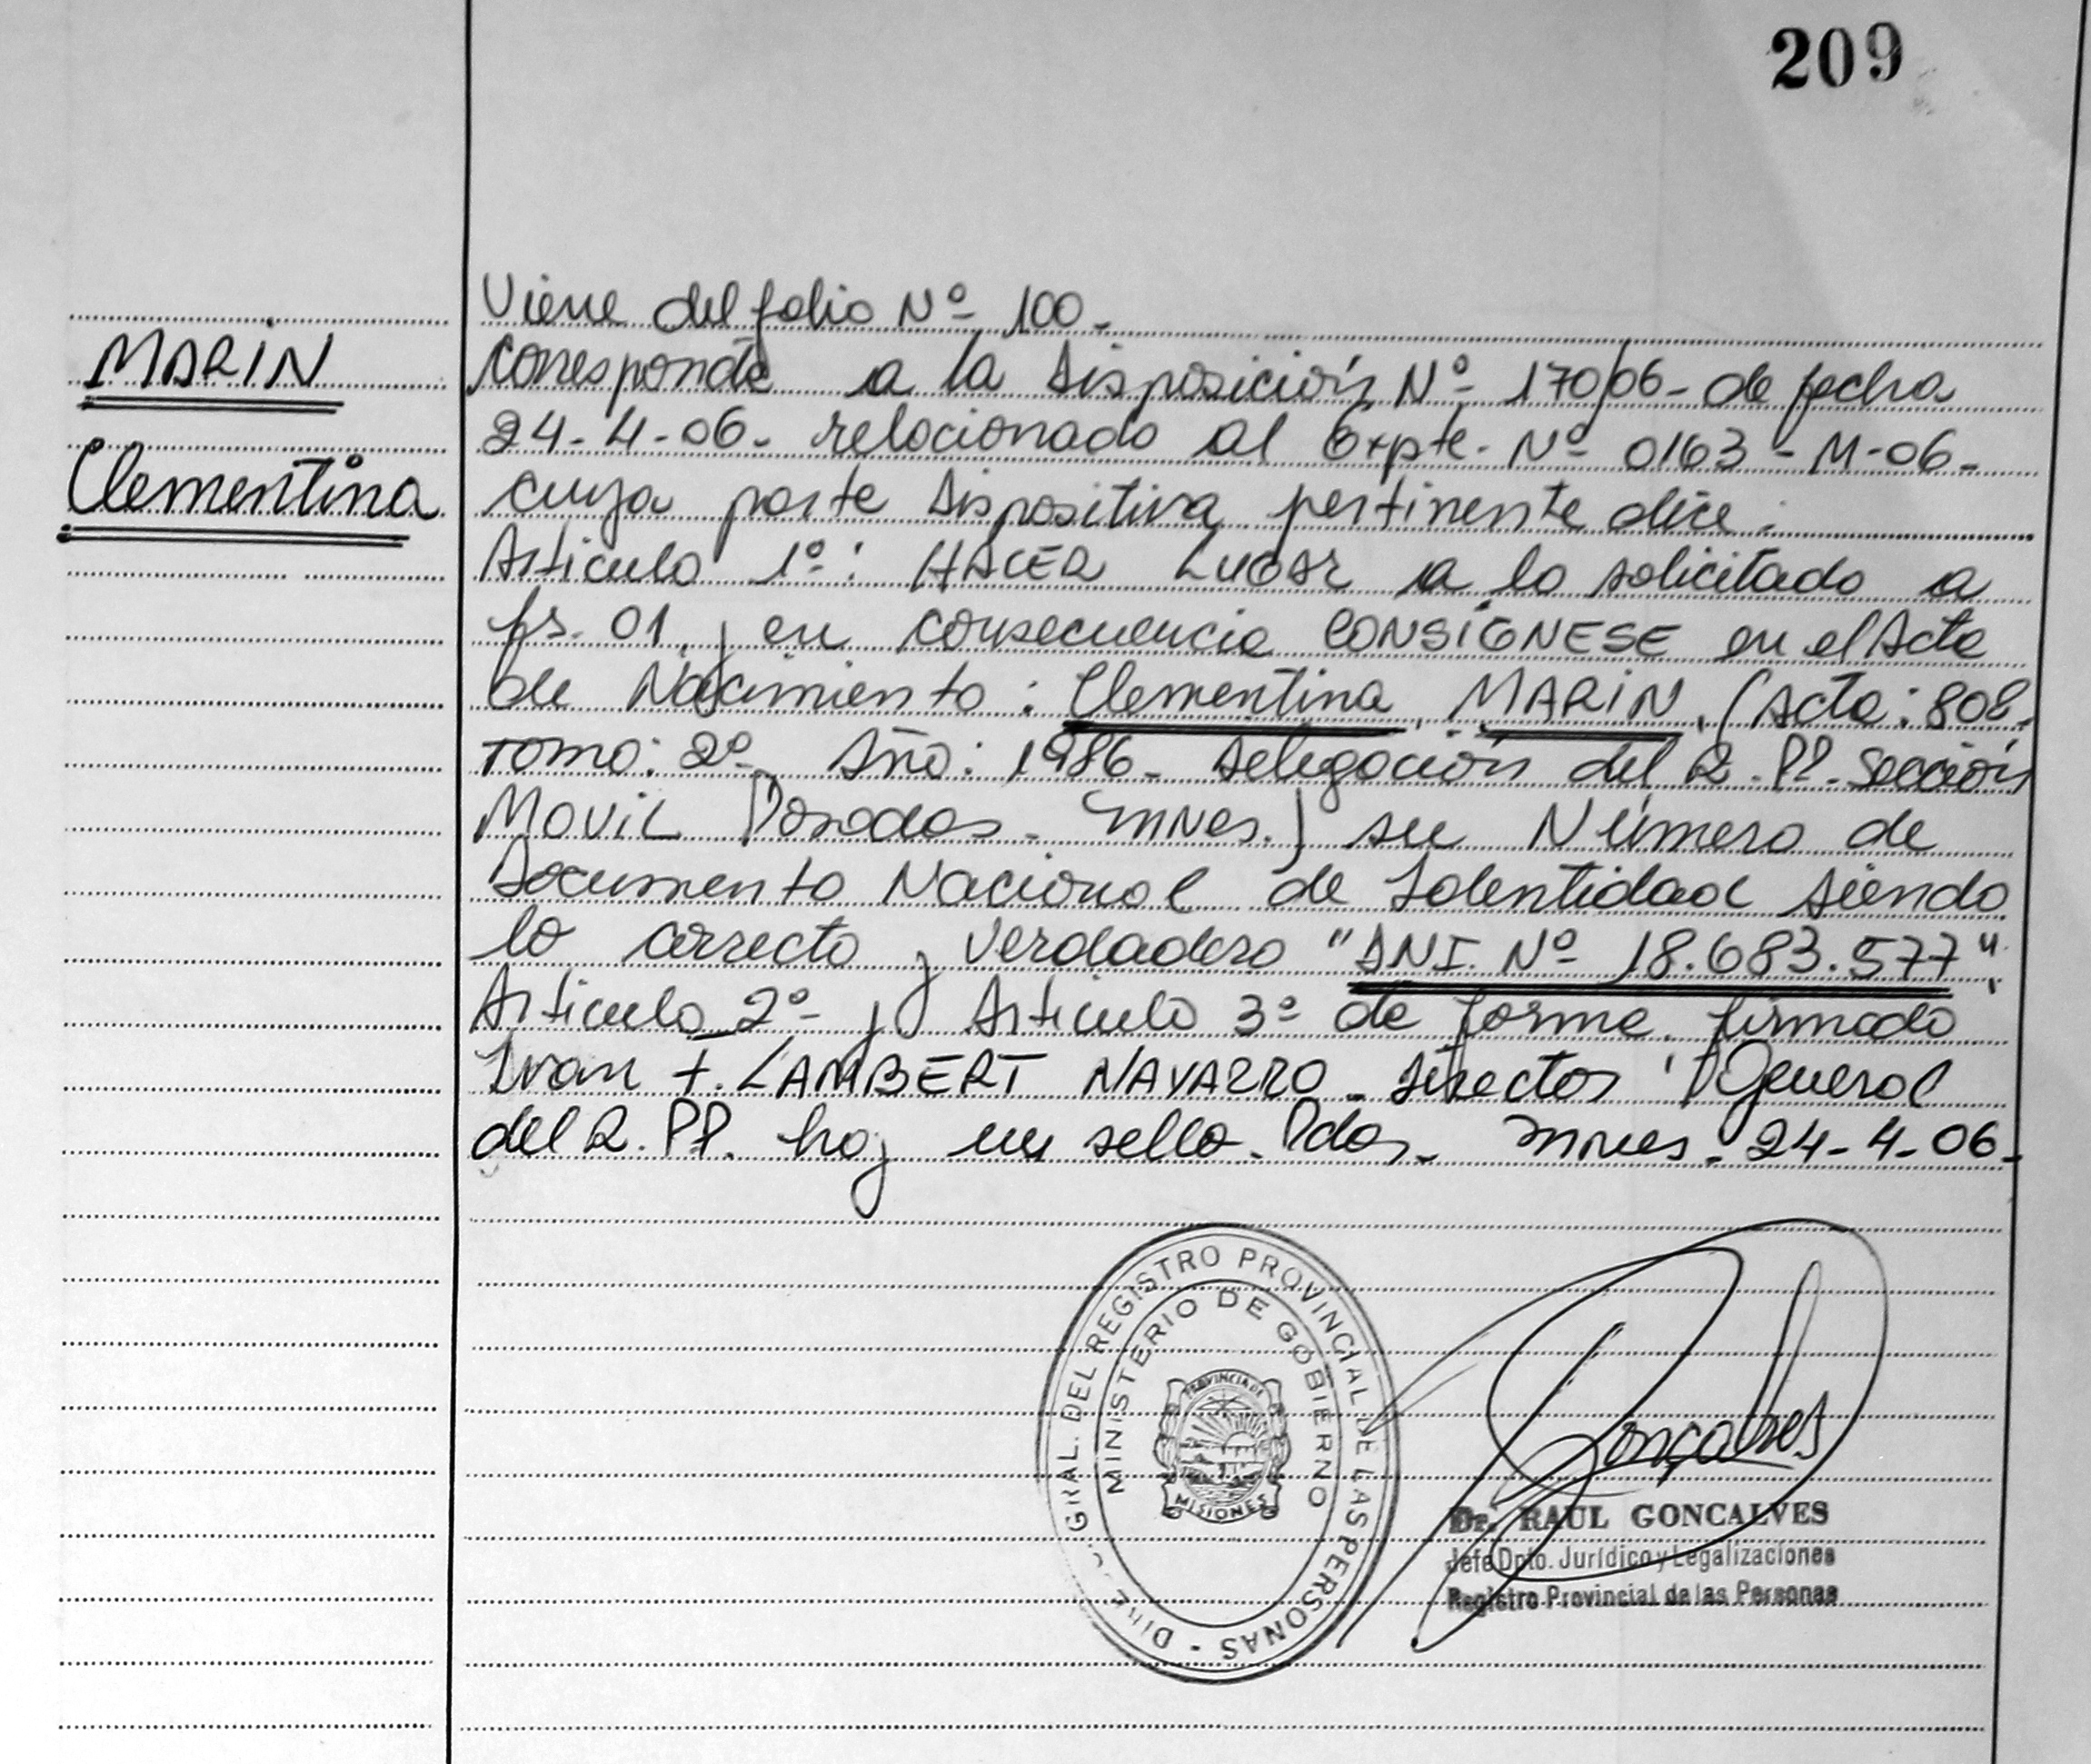 209
MARIN
Clementina
Viene del folio Nº 100.
Corresponde a la Disposición Nº 170/06 - de fecha
24-4-06- relacionado al Expte. Nº 0163-M-06-
cuya parte Dispositiva pertinente dice:
Articulo 1º: HACER LUGAR a lo solicitado a
fs. 01 y en consecuencia CONSIGNESE en el Acta
de Nacimiento: Clementina MARIN. (Acta: 808-
TOMO: 2º Año: 1986- Delegación del R. PP. Sección
MOVIL Posadas- Mnes.) su Número de
Documento Nacional de Identidad siendo
lo correcto y verdadero "DNI. Nº 18.683.577".
Articulo 2º y Articulo 3º de forma. firmado
Ivan F. LAMBERT NAVARRO - Director General
del R. PP. hay un sello - Pdas. Mnes. 24-4-06-
DIREC. GRAL. DEL REGISTRO PROVINCIAL DE LAS PERSONAS -
MINISTERIO DE GOBIERNO
PROVINCIA DE
MISIONES
Gonçalves
Dr. RAUL GONCALVES
Jefe Dpto. Jurídico y Legalizaciones
Registro Provincial de las Personas